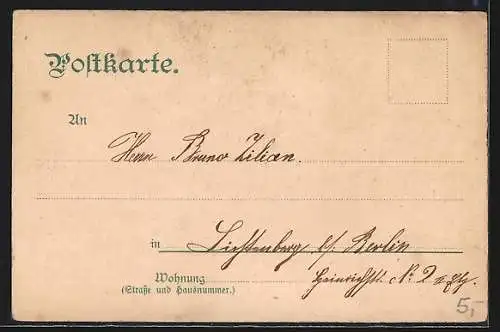 Postkarte.
An
Herrn Bruno Zilian.
in Lichtenberg b/ Berlin
Wohnung Heinrichstr. No 2
(Straße und Hausnummer.)
5,-